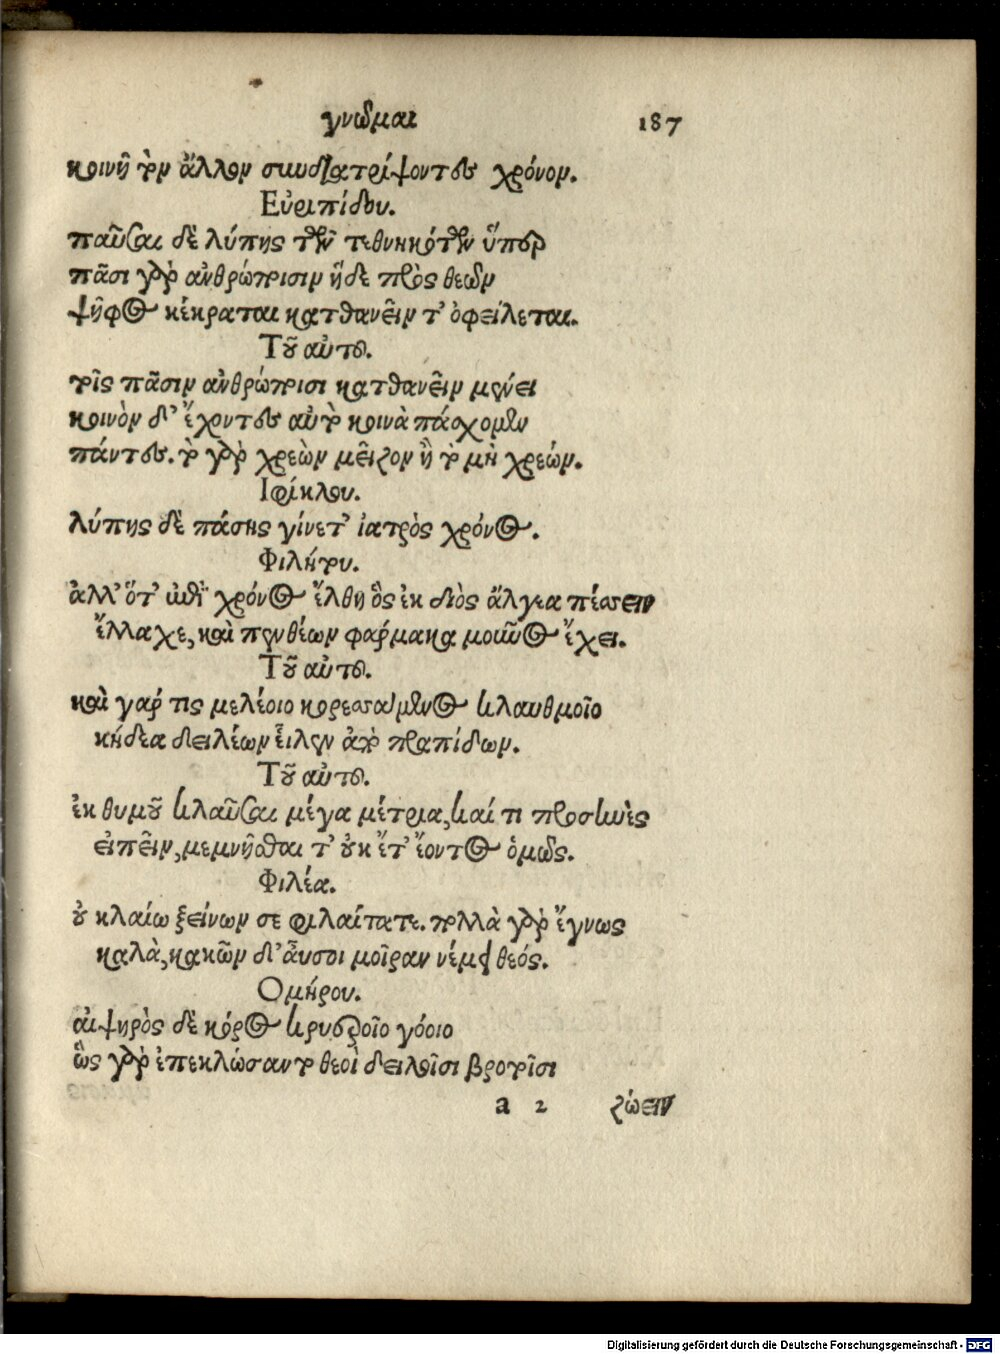 γνῶμαι 187
κοινῇ τὸν ἄλλον συνδιατρίψοντες χρόνον.
Εὐριπίδου.
παῦσαι δὲ λύπης τῶν τεθνηκότων ὕπερ
πᾶσι γὰρ ἀνθρώποισιν ἥδε πρὸς θεῶν
ψῆφος κέκραται κατθανεῖν τ' ὀφείλεται.
Τοῦ αὐτοῦ.
τοῖς πᾶσιν ἀνθρώποισι κατθανεῖν μένει
κοινὸν δ' ἔχοντες αὐτὸ κοινὰ πάσχομεν
πάντες. τὸ γὰρ χρεὼν μεῖζον ἢ τὸ μὴ χρεών.
Ιφίκλου.
λύπης δὲ πάσης γίνετ' ἰατρὸς χρόνος.
Φιλήτου.
ἀλλ' ὅτ' ἐπὶ χρόνος ἔλθη ὃς ἐκ διὸς ἄλγεα πέσσειν
ἔλλαχε, καὶ πενθέων φαρμακα μοῦνος ἔχει.
Τοῦ αὐτοῦ.
καὶ γαρ τις μελέοιο κορεσσάμενος κλαυθμοῖο
κήδεα δειλέων εἷλεν ἀπὸ πραπίδων.
Τοῦ αὐτοῦ.
ἐκ θυμοῦ κλαῦσαι μέγα μέτρια, καί τι προσηνὲς
εἰπεῖν, μεμνῆσθαι τ' οὐκ ἔτ' ἔοντος ὁμῶς.
Φιλέα.
οὐ κλαίω ξείνων σε φιλαίτατε. πολλὰ γὰρ ἔγνως
καλὰ, κακῶν δ' αὖσοι μοῖραν νέμει θεός.
Ομήρου.
αἰψηρὸς δὲ κόρος κρυεροῖο γόοιο
ὣς γὰρ ἐπεκλώσαντο θεοὶ δειλοῖσι βροτοῖσι
a 2 ζώειν
Digitalisierung gefördert durch die Deutsche Forschungsgemeinschaft - DFG